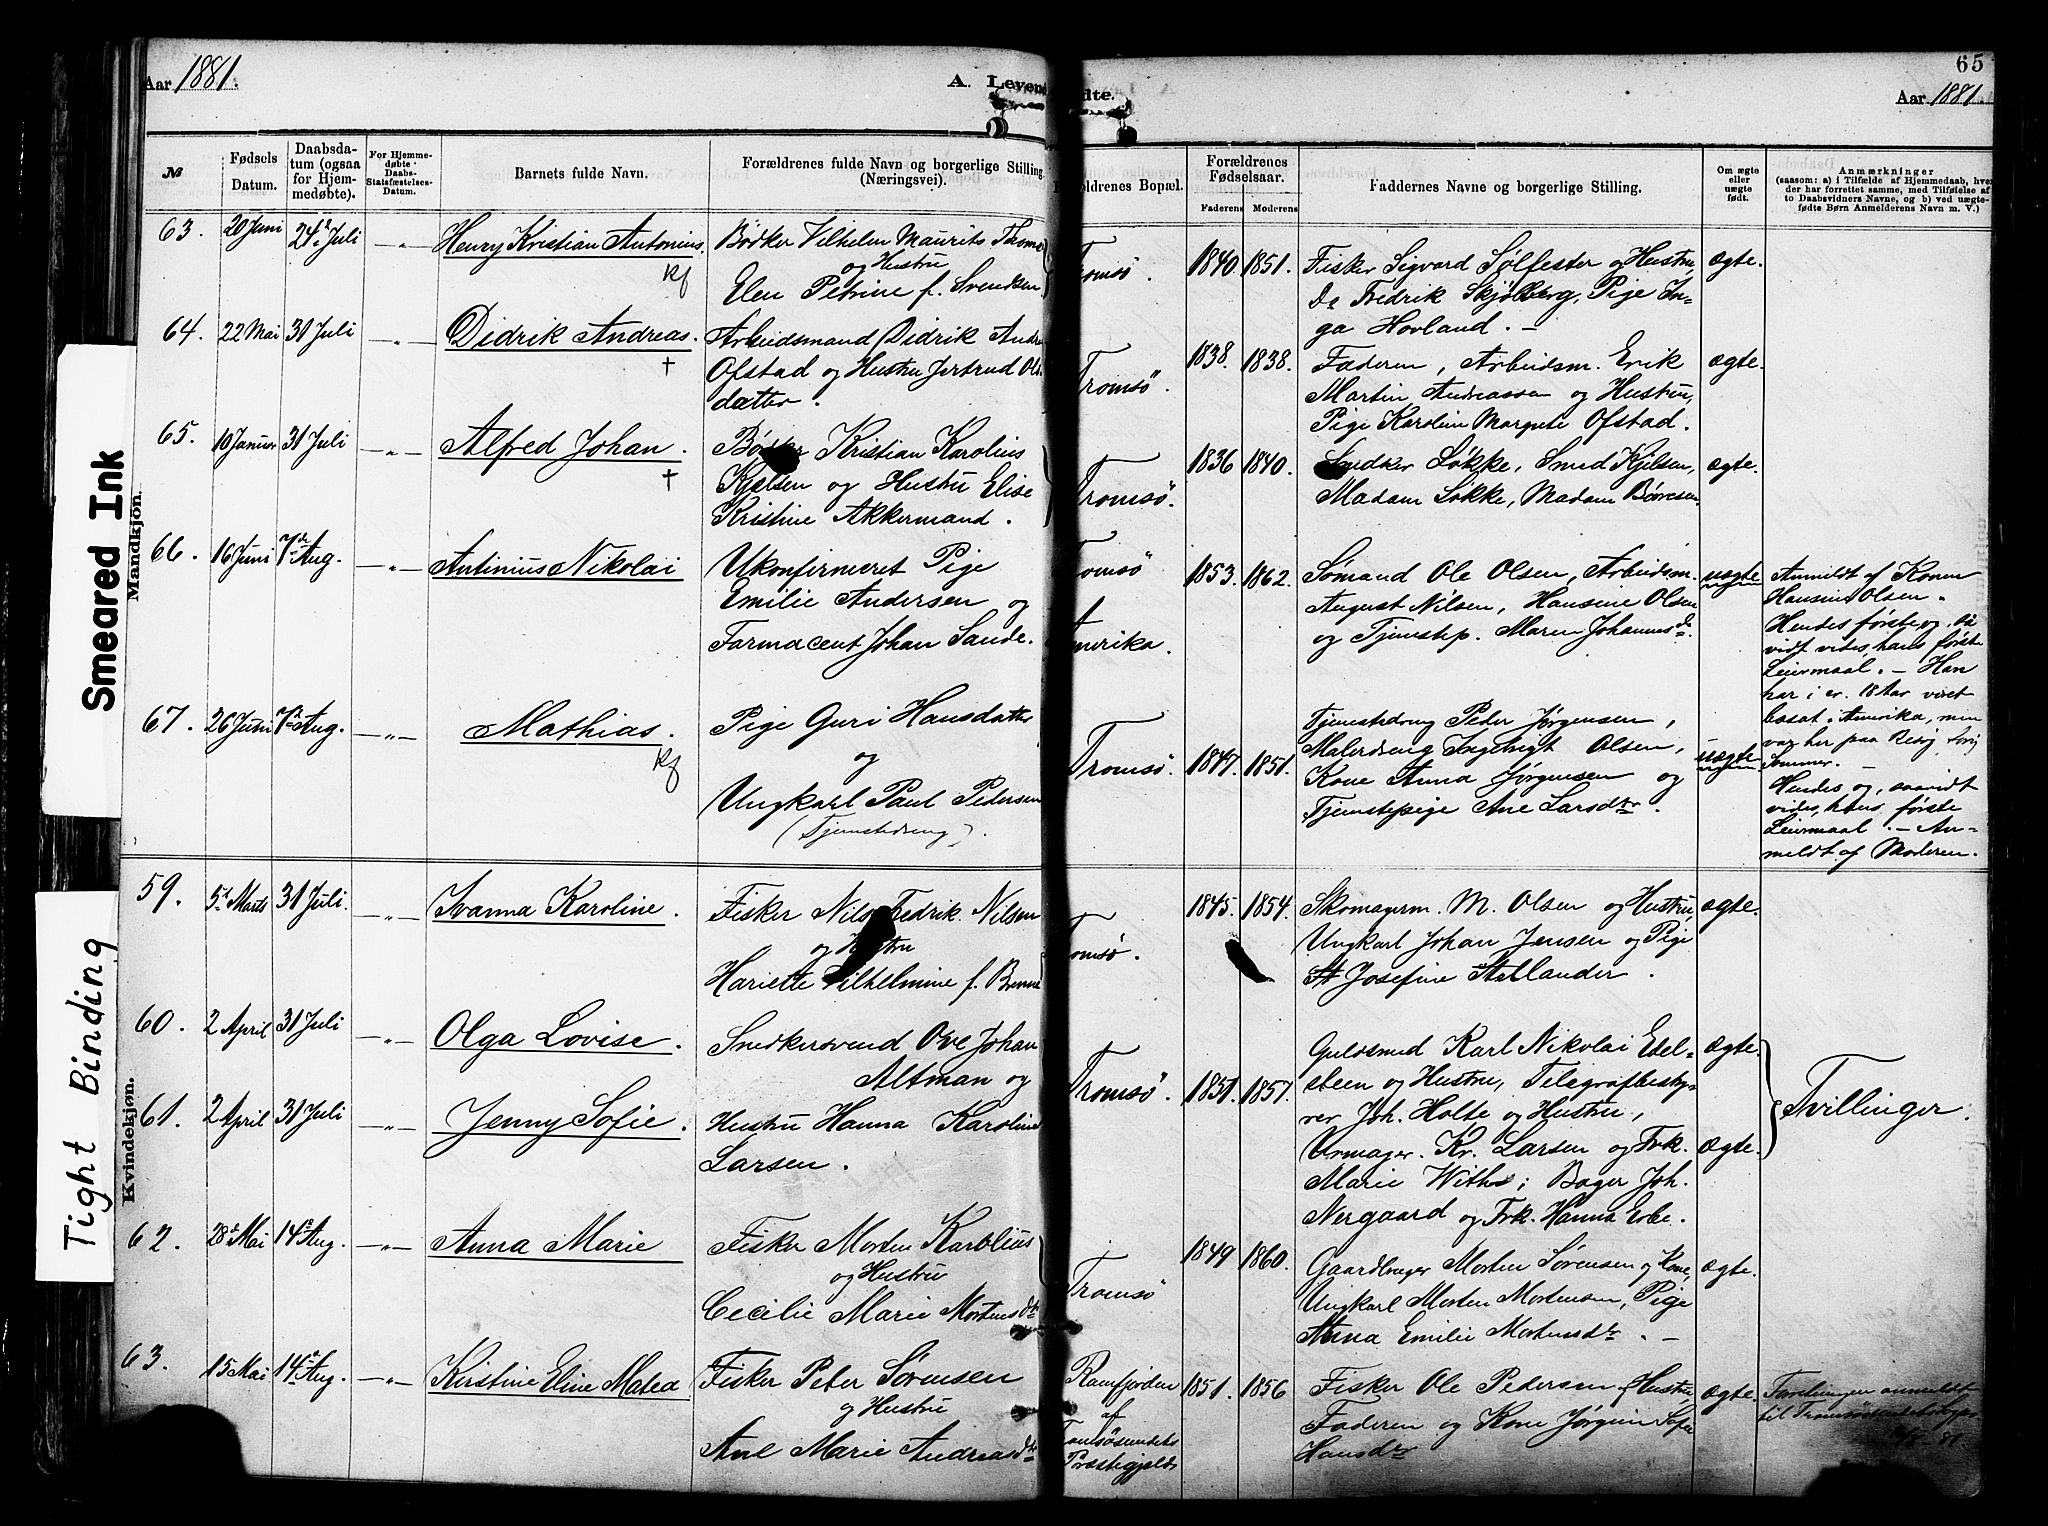 65
Aar 1881.
A. Leven
dte.
Aar 1881.
№
Fødsels
Datum.
Daabsda-
tum (ogsaa
for Hjem-
medøbte).
For Hjemme-
døbte
Daabs-
Statsfæstelses-
Datum.
Barnets fulde Navn.
Forældrenes fulde Navn og borgerlige Stilling.
(Næringsvei).
ldrenes Bopæl.
Forældrenes
Fødselsaar.
Faderens
Moderens
Faddernes Navne og borgerlige Stilling.
Om ægte
eller
uægte
født.
Anmærkninger
(saasom: a) i Tilfælde af Hjemmedaab, hver
der har forrettet samme, med Tilføielse af
to Daabsvidners Navne, og b) ved uægte-
fødte Børn Anmelderens Navn m. V.)
Smeared Ink
Tight Binding
Mandkjøn.
Kvindekjøn.
63.
20 Juni
24de Juli
Henry Kristian Antonius.
kf
Bødker Vilhelm Maurits
og Hustru
Elen Petrine f. Svendsen
Tromsö.
1840.
1851.
Fisker Sigvard Sølfester og Hustru,
Do Fredrik Skjølberg, Pige In-
ga Hovland. –
ægte.
64.
22 Mai
31 Juli
Didrik Andreas.
†
Arbeidsmand Didrik Andr
Ofstad og Hustru Jertrud Ols
datter.
Tromsö.
1838.
1838.
Faderen, Arbeidsm. Erik
Martin Andreassen og Hustru,
Pige Karolin Margrete Ofstad.
ægte.
65.
10 Januar
31 Juli
Alfred Johan.
†
Bødker Kristian Karolius
Kjelsen og Hustru Elise
Kristine Akkermand.
Tromsö.
1836
1840.
Snedker Løkke, Smed Kjelsen,
Madam Løkke, Madam Børresen
ægte.
66.
16 Juni
7de Aug.
Antinius Nikolai
Ukonfirmeret Pige
Emilie Andersen og
Farmacent Johan Sande.
Tromsö
Amerika.
1853.
1862.
Sømand Ole Olsen, Arbeidsm.
August Nilsen, Hansine Olsen
og Tjenestep. Maren Johannesd.
uægte
Anmeldt af Konen
Hansine Olsen.
Hendes første og, så
vidt vides, hans første
Leiermaal. – Han
har i cr. 18 Aar været
bosat i Amerika, men
var her paa Besøg forrig
Sommer. –
67.
26 Juni
7de Aug.
Mathias.
kf
Pige Guri Hansdatter
og
Ungkarl Paul Pedersen
(Tjenestedreng).
Tromsö.
1847.
1851.
Tjenestedreng Peder Jørgensen,
Malerdreng Ingebrigt Olsen,
Kone Anna Jørgensen og
Tjenestepige Ane Larsdtr.
uægte
Hendes og, saavidt
vides, hans første
Leiermaal. – An-
meldt af Moderen.
59.
5d Marts
31 Juli.
Ivanna Karoline.
Fisker Nils Fredrik Nilsen
og Hustru
Hariette Vilhelmine f. Brenne
Tromsö.
1845.
1854.
Skomagerm. M. Olsen og Hustru,
Ungkarl Johan Jensen og Pige
Josefine Stellander.
ægte.
60.
2 April
31 Juli
Olga Lovise.
Snedkersvend Ove Johan
Altman og
Tromsö.
1851.
1857.
Guldsmed Karl Nikolai Edel-
steen og Hustru, Telegrafbesty-
rer Joh. Holte og Hustru,
ægte.
Tvillinger.
61.
2 April
31 Juli
Jenny Sofie.
Hustru Hanna Karoline
Larsen.
Urmager Kr. Larsen og Frk.
Marie Withs; Bager Joh.
Nergaard og Frk. Hanna Ebbe.
ægte.
62.
28de Mai
14de Aug.
Anna Marie
Fisker Morten Karolius
og Hustru
Cecilie Marie Mortensdtr
Tromsö
1849
1860.
Gaardbruger Morten Sørensen og Kone,
Ungkarl Morten Mortensen, Pige
Anna Emilie Mortensdtr. –
ægte.
63.
15 Mai
14de Aug.
Kirstine Eline Matea
Fisker Peter Sørensen
og Hustru
Ane Marie Andreasdtr
Ramfjorden
af
Tromsösundets
Præstegjeld.
1851.
1856
Fisker Ole Pedersen, Hustru,
Faderen og Kone Jørgine Sofie
Hansdtr
ægte.
til Tromsösundets